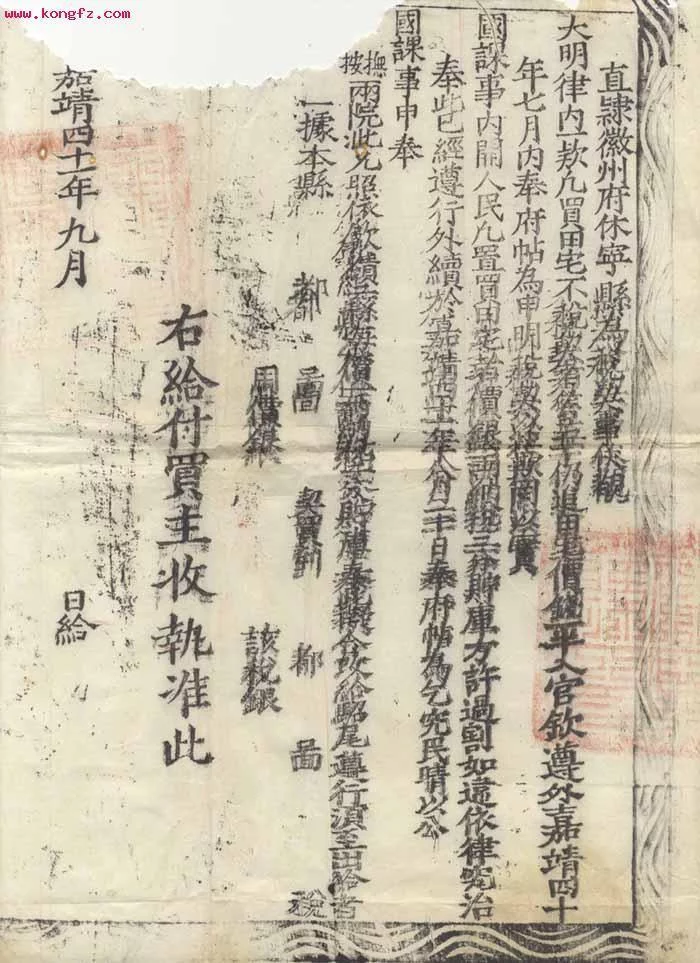 www.kongfz.com
直隸徽州府休寧縣為稅契事伏覩
大明律內一款凡買田宅不稅契者笞五十仍追田宅價錢一半入官欽遵外嘉靖四十
年七月內奉府帖為申明稅契以
國課事內開人民凡置買田宅若價銀一兩納稅三分貯庫方許過割如違依律究治
奉此已經遵行外續於嘉靖四十一年八月二十日奉府帖為乞究民情以公
國課事申奉
撫按兩院批允照依
給尾遵行須至出給者
一據本縣 都 啚 契買到 都 啚 稅
用價銀 該稅銀
右給付買主收執准此
嘉靖四十一年九月 日給